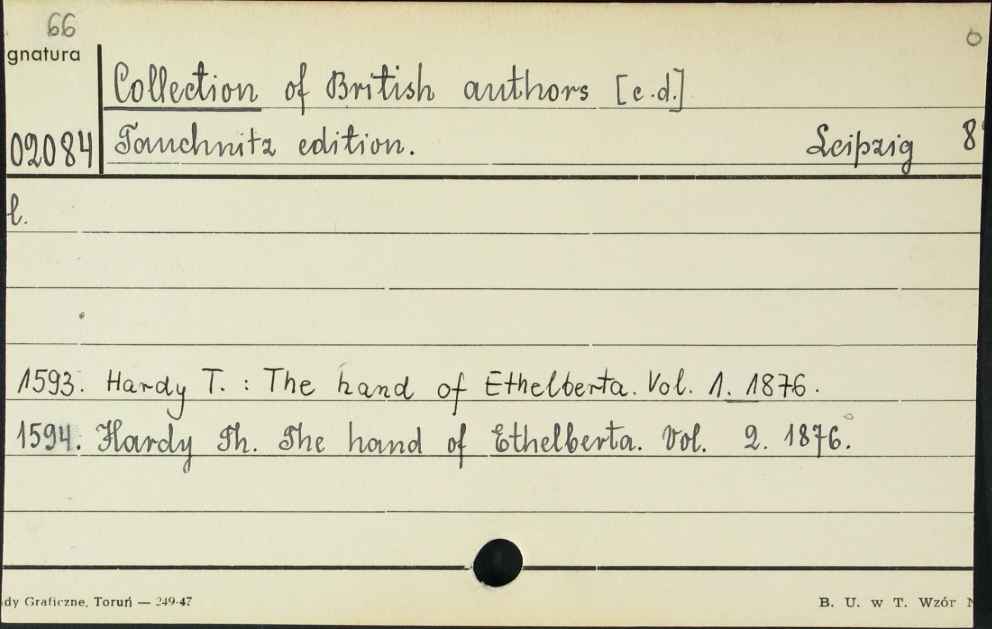 66
gnatura
Collection of British authors [e.d.]
02084 Tauchnitz edition. Leipzig 8°
l.
1593. Hardy T. : The hand of Ethelberta. Vol. 1. 1876.
1594. Hardy Th. The hand of Ethelberta. Vol. 2. 1876.
dy Graficzne, Toruń — 249-47 B. U. w T. Wzór N